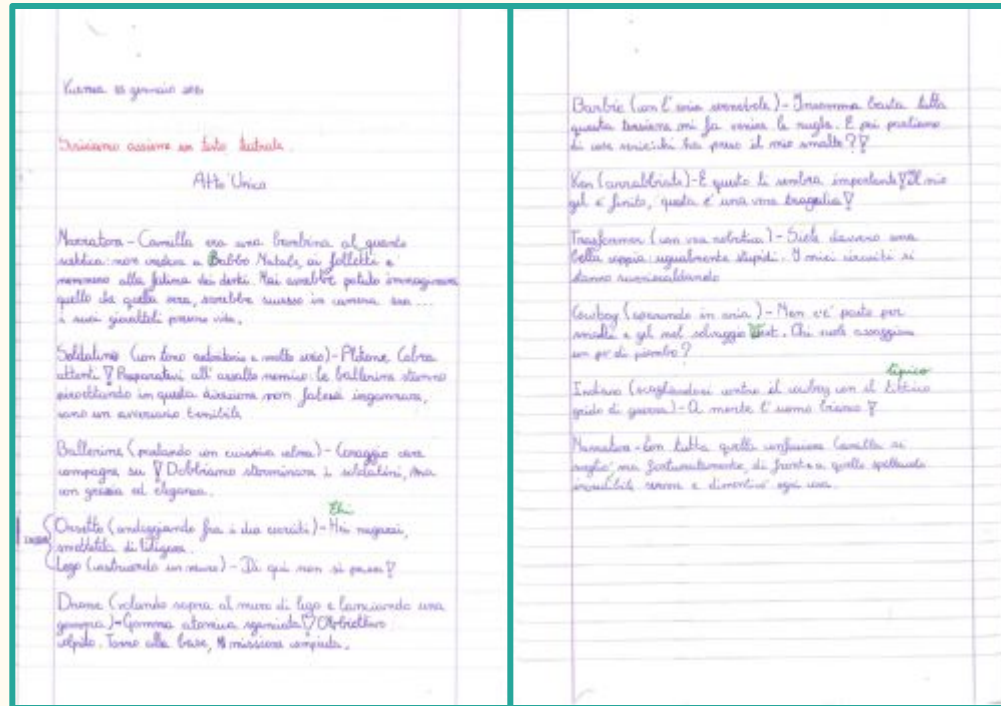 gennaio
Scriviamo assieme un testo teatrale.
Atto Unico
Narratore - Camilla era una bambina al quanto
scettica: non credeva a Babbo Natale, ai folletti e
nemmeno alla fatina dei denti. Mai avrebbe potuto immaginare
quello che quella sera, sarebbe successo in camera sua ...
i suoi giocattoli presero vita.
Soldatino (con tono autoritario e molto serio) - Plotone Cobra
attenti! Preparatevi all' assalto nemico: le ballerine stanno
piroettando in questa direzione non fatevi ingannare,
sono un avversario temibile.
Ballerine (parlando con eccessiva calma) - Coraggio care
compagne su! Dobbiamo sterminare i soldatini, ma
con grazia ed eleganza.
Ehi
Orsetto (ondeggiando fra i due eserciti) - Hei ragazzi,
smettetela di litigare.
Lego (costruendo un muro) - Di qui non si passa!
Drone (volando sopra al muro di lego e lanciando una
gomma) - Gomma atomica sganciata! Obbiettivo
colpito. Torno alla base, missione compiuta.
Barbie (con l' aria sconvolta) - Insomma basta tutta
questa tensione mi fa venire le rughe. E poi parliamo
di cose serie: chi ha preso il mio smalto?!
Ken (arrabbiato) - E questo ti sembra importante! Il mio
gel è finito, questa è una vera tragedia!
Trasformer (con voce robotica) - Siete davvero una
bella coppia: ugualmente stupidi. I miei circuiti si
stanno surriscaldando
Cowboy (sparando in aria) - Non c'è posto per
smalti e gel nel selvaggio West. Chi vuole assaggiare
un po' di piombo?
tipico
Indiano (scagliandosi contro il cowboy con il
grido di guerra) - A morte l' uomo bianco!
Narratore - Con tutta quella confusione Camilla si
svegliò, ma fortunatamente, di fronte a quello spettacolo
incredibile svenne e dimenticò ogni cosa.